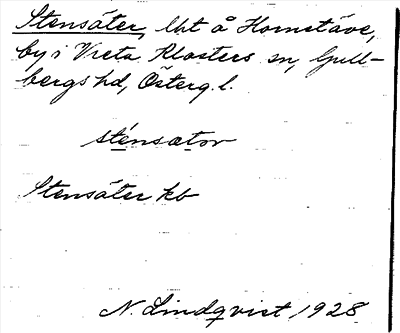 Stensäter, lht å Hornstäve,
by i Vreta Klosters sn, Gull-
bergs hd, Österg.l.
sténsætor
Stensäter kb
N. Lindqvist 1928